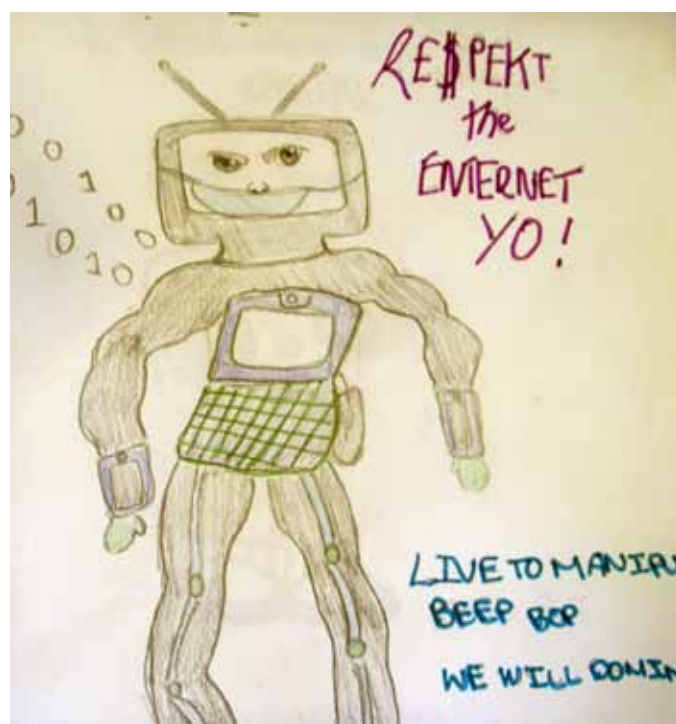 RE$PEKT
the
ENTERNET
YO!
0
0
1
0
1
0
0
1
0
LIVE TO MANIPU
BEEP BOP
WE WILL DOMIN